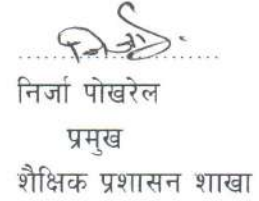 निर्जा पोखरेल
प्रमुख
शैक्षिक प्रशासन शाखा